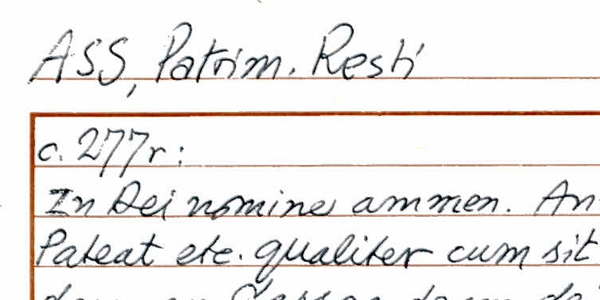 ASS, Patrim. Resti
c. 277r:
In Dei nomine ammen. An
Pateat etc. qualiter cum sit